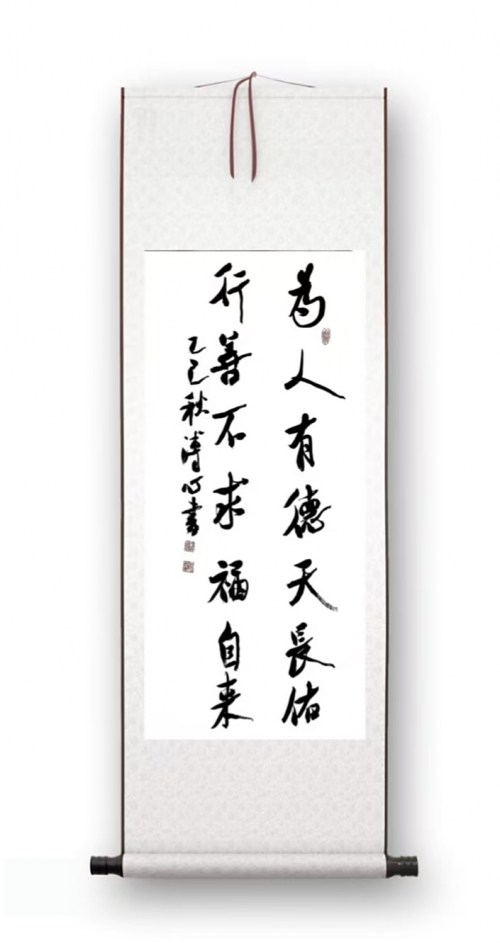 為人有德天長佑
行善不求福自来
乙巳秋溥心書